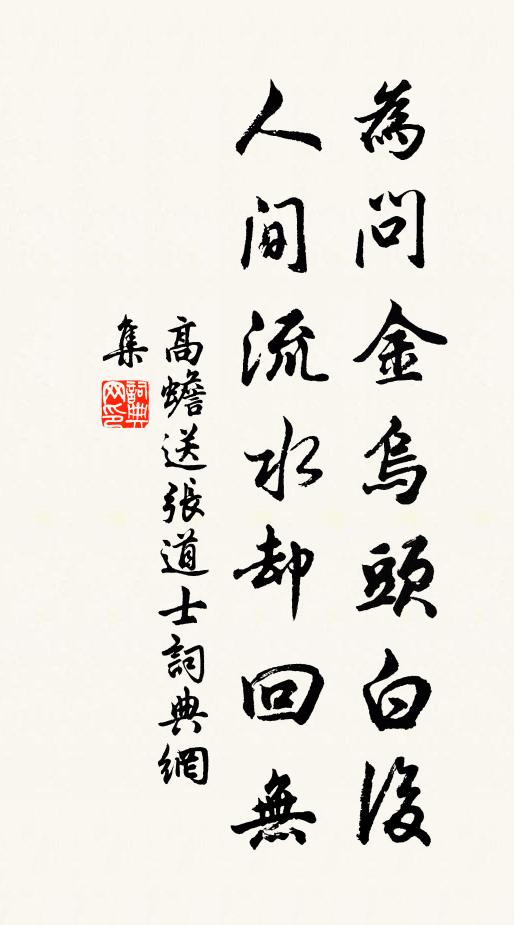 為問金烏頭白後
人間流水却回無
高蟾送張道士詞典網
集
詞典
网印